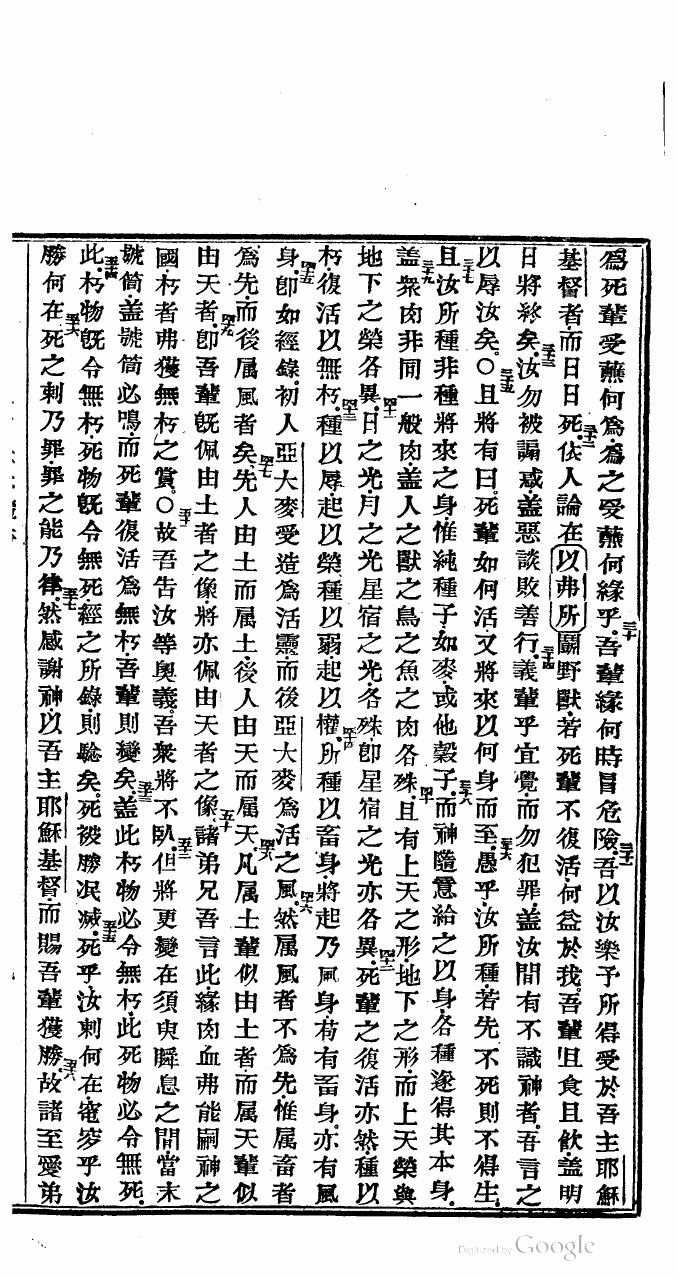 為死輩受蘸何為為之受蘸何緣乎吾輩緣何時冒危險吾以汝樂予所得受於吾主耶穌
基督者而日日死依人論在以弗所鬬野獸若死輩不復活何益於我吾輩且食且飲盖明
日將終矣汝勿被諞惑盖惡談敗善行義輩乎宜覺而勿犯罪盖汝間有不識神者吾言之
以辱汝矣〇且將有曰死輩如何活又將來以何身而至愚乎汝所種若先不死則不得生
且汝所種非種將來之身惟純種子如麥或他穀子而神隨意給之以身各種遂得其本身
盖衆肉非同一般肉盖人之獸之鳥之魚之肉各殊且有上天之形地下之形而上天榮與
地下之榮各異日之光月之光星宿之光各殊即星宿之光亦各異死輩之復活亦然種以
朽復活以無朽種以辱起以榮種以弱起以權所種以畜身將起乃風身苟有畜身亦有風
身即如經錄初人亞大麥受造為活靈而後亞大麥為活之風然属風者不為先惟属畜者
為先而後属風者矣先人由土而属土後人由天而属天凡属土輩似由土者而属天輩似
由天者即吾輩旣佩由土者之像將亦佩由天者之像諸弟兄吾言此緣肉血弗能嗣神之
國朽者弗獲無朽之賞〇故吾告汝等奧義吾衆將不臥但將更變在須臾瞬息之間當末
號筒盖號筒必鳴而死輩復活為無朽吾輩則變矣盖此朽物必令無朽此死物必令無死
此朽物旣令無朽死物旣令無死經之所錄則騐矣死被勝泯滅死乎汝刺何在塚穸乎汝
勝何在死之刺乃罪罪之能乃律然感謝神以吾主耶穌基督而賜吾輩獲勝故諸至愛弟
Digitized by Google